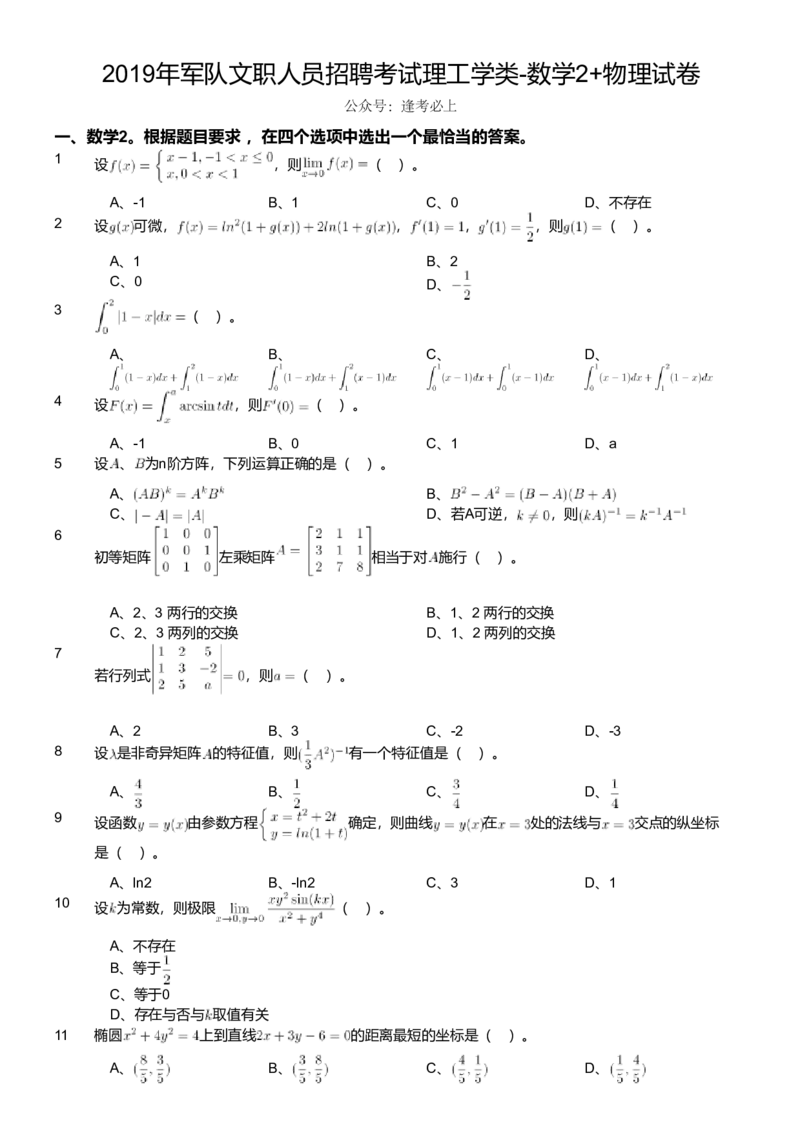 2019年军队文职人员招聘考试理工学类-数学2+物理试卷
公众号：逢考必上
一、数学2。根据题目要求 ，在四个选项中选出一个最恰当的答案。
1 设f(x) = { x − 1, −1 < x ≤ 0; x, 0 < x < 1 ，则lim_{x→0} f(x) = （ ）。
A、-1 B、1 C、0 D、不存在
2 设g(x)可微，f(x) = ln²(1 + g(x)) + 2ln(1 + g(x))，f′(1) = 1，g′(1) = 1/2，则g(1) = （ ）。
A、1 B、2
C、0 D、−1/2
3 ∫_0^2 |1 − x|dx = （ ）。
A、 B、 C、 D、
∫_0^1 (1 − x)dx + ∫_1^2 (1 − x)dx ∫_0^1 (1 − x)dx + ∫_1^2 (x − 1)dx ∫_0^1 (x − 1)dx + ∫_0^1 (x − 1)dx ∫_0^1 (1 − x)dx + ∫_1^2 (1 − x)dx
4 设F(x) = ∫_x^a arcsin tdt，则F′(0) = （ ）。
A、-1 B、0 C、1 D、a
5 设A、B为n阶方阵，下列运算正确的是（ ）。
A、(AB)^k = A^k B^k B、B² − A² = (B − A)(B + A)
C、| − A| = |A| D、若A可逆，k ≠ 0，则(kA)^−1 = k^−1 A^−1
6
初等矩阵[1 0 0; 0 0 1; 0 1 0]左乘矩阵A = [2 1 1; 3 1 1; 2 7 8]相当于对A施行（ ）。
A、2、3 两行的交换 B、1、2 两行的交换
C、2、3 两列的交换 D、1、2 两列的交换
7
若行列式|1 2 5; 1 3 −2; 2 5 a| = 0，则a = （ ）。
A、2 B、3 C、-2 D、-3
8 设λ是非奇异矩阵A的特征值，则(1/3 A²)^−1有一个特征值是（ ）。
A、4/3 B、1/2 C、3/4 D、1/4
9 设函数y = y(x)由参数方程{ x = t² + 2t; y = ln(1 + t) 确定，则曲线y = y(x)在x = 3处的法线与x = 3交点的纵坐标
是（ ）。
A、ln2 B、-ln2 C、3 D、1
10 设k为常数，则极限 lim_{x→0,y→0} xy² sin(kx)/(x² + y⁴) （ ）。
A、不存在
B、等于1/2
C、等于0
D、存在与否与k取值有关
11 椭圆x² + 4y² = 4上到直线2x + 3y − 6 = 0的距离最短的坐标是（ ）。
A、(8/5, 3/5) B、(3/5, 8/5) C、(4/5, 1/5) D、(1/5, 4/5)